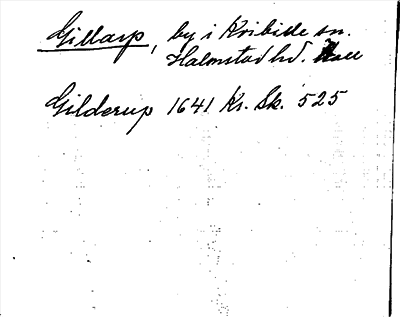 Gillarp, by i Kvibille sn.
Halmstad hd. Hall
Gilderup 1641 Kr. Sk. 525